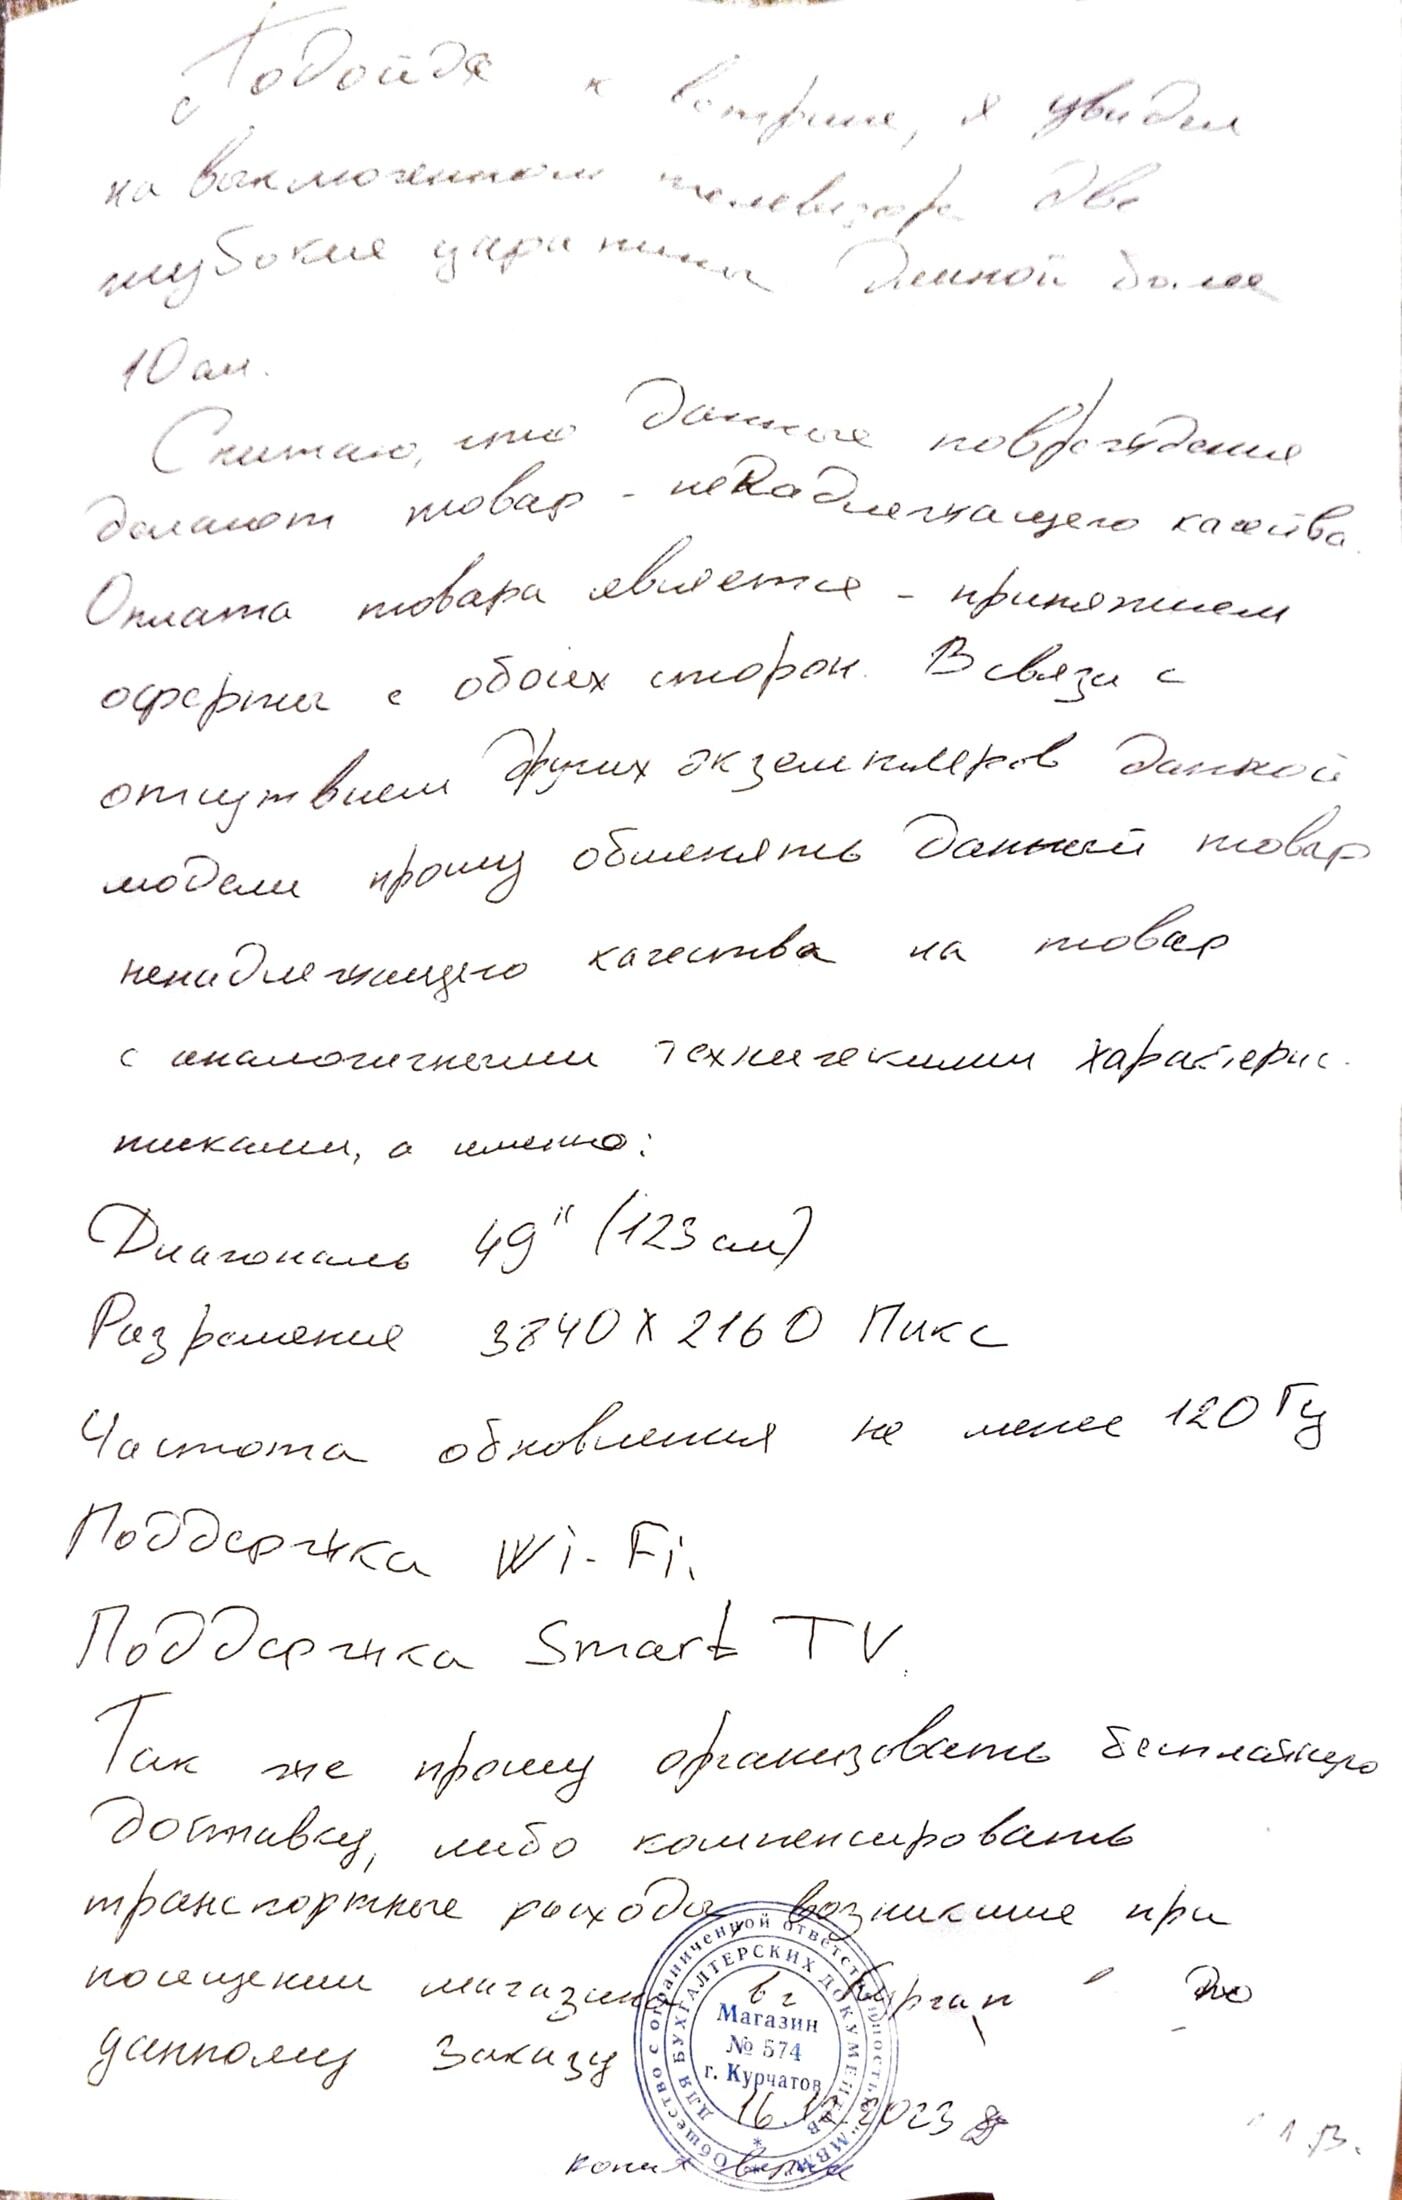 Подойдя к витрине, я увидел
на выключенном телевизоре две
глубокие царапины длиной более
10 см.
Считаю, что данные повреждения
делают товар - ненадлежащего качества.
Оплата товара является - принятием
оферты с обоих сторон. В связи с
отсутвием других экземпляров данной
модели прошу обменять данный товар
ненадлежащего качества на товар
с аналогичными техническими характерис-
тиками, а именно:
Диагональ 49" (123 см)
Разрешение 3840 х 2160 Пикс
Частота обновления не менее 120 Гц
Поддержка Wi-Fi.
Поддержка Smart TV.
Так же прошу организовать бесплатную
доставку, либо компенсировать
транспортные расходы возникшие при
посещении магазина в г Курган по
данному заказу
Общество с ограниченной ответственностью "МВМ"
Для бухгалтерских документов
Магазин
№ 574
г. Курчатов
16.12.2023
копия верна